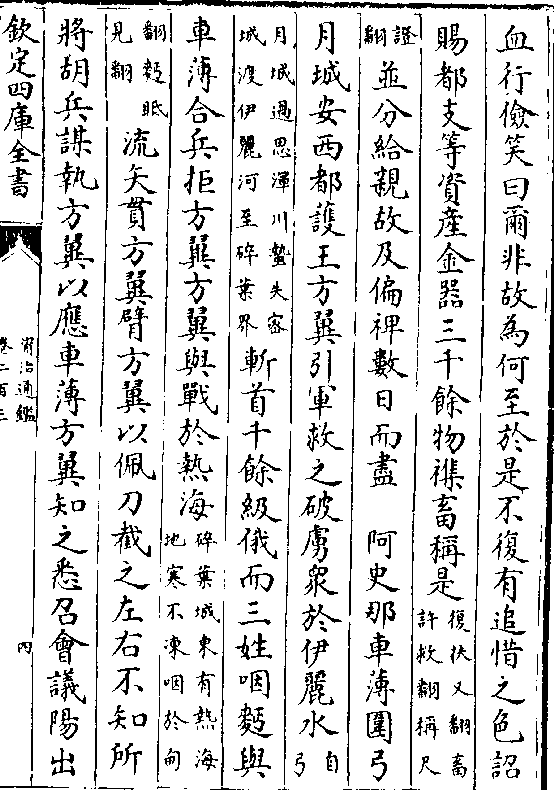 血行儉笑曰爾非故為何至於是不復有追惜之色詔
賜都支等資産金器三千餘物襍畜稱是復扶又翻畜
許救翻稱尺
證
翻並分給親故及偏裨數日而盡 阿史那車薄圍弓
月城安西都護王方翼引軍救之破虜衆於伊麗水自
弓
月城過思渾川蟄失宻
城渡伊麗河至碎葉界斬首千餘級俄而三姓咽麪與
車薄合兵拒方翼方翼與戰於熱海碎葉城東有熱海
地寒不凍咽於甸
翻麪眠
見翻流矢貫方翼臂方翼以佩刀截之左右不知所
將胡兵謀執方翼以應車薄方翼知之悉召會議陽出
欽定四庫全書
資治通鑑
卷二百三